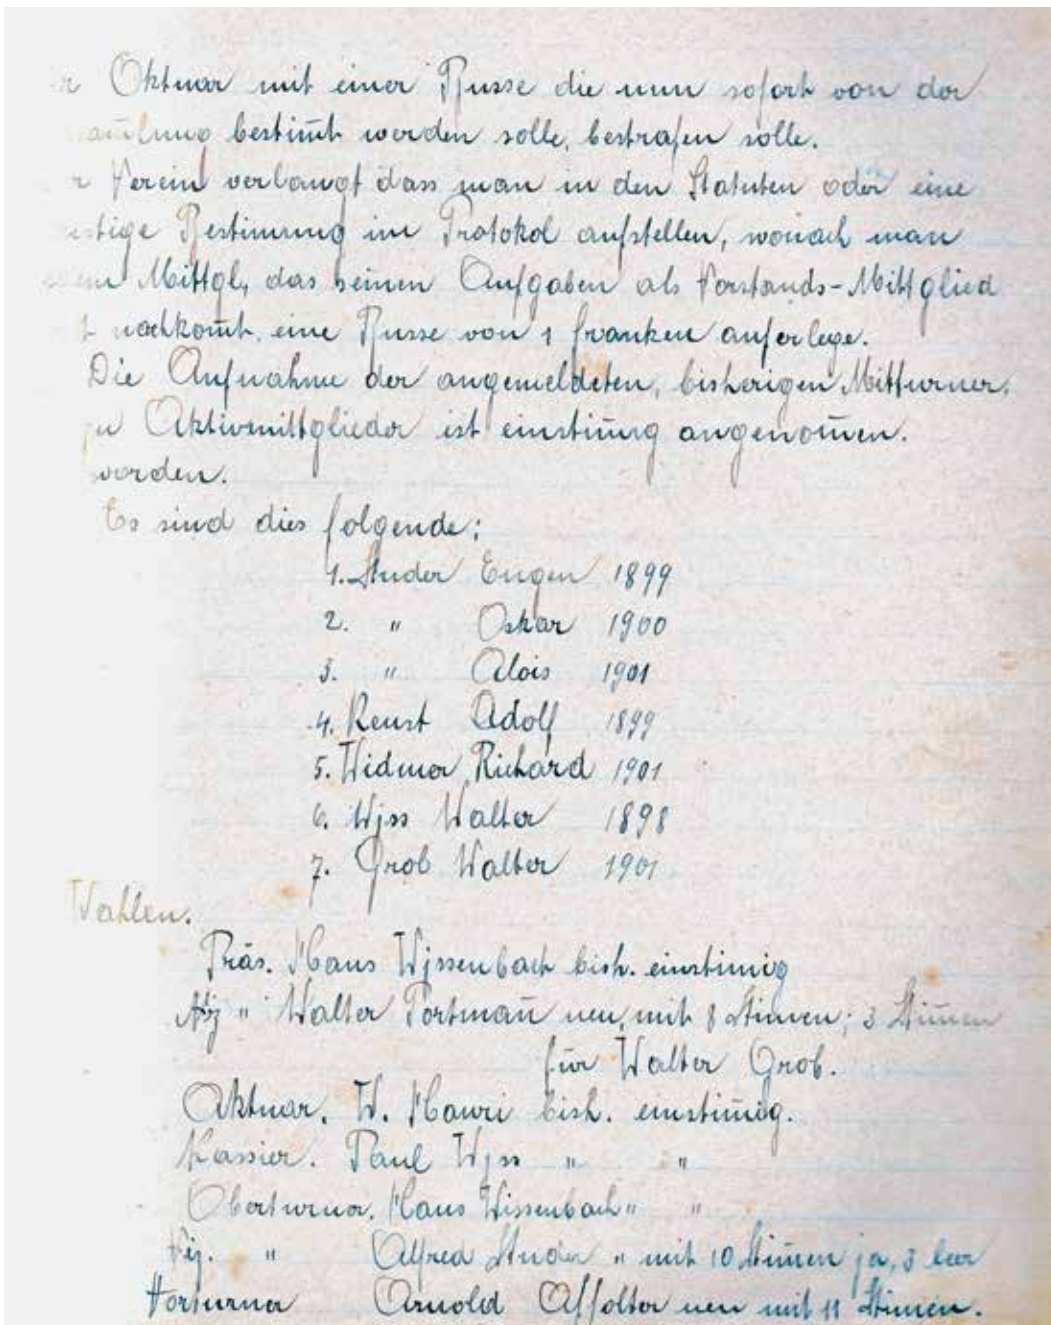 Aktuar mit einer Busse die nun sofort von der
bestim̅t werden solle, bestrafen solle.
Verein verlangt dass man in den Statuten oder eine
Bestimmung im Protokol aufstellen, wonach man
Mittgl, das seinen Aufgaben als Vorstands-Mittglied
nachkom̅t, eine Busse von 1 Franken auferlege.
Die Aufnahme der angemeldeten, bisherigen Mitturner,
zu Aktivmittglieder ist einstim̅ig angenom̅en.
worden.
Es sind dies folgende:
1. Studer Eugen 1899
2. " Oskar 1900
3. " Alois 1901
4. Reust Adolf 1899
5. Widmer Richard 1901
6. Wyss Walter 1898
7. Grob Walter 1901
Wahlen.
Präs. Hans Wyssenbach bish. einstimig
Viz " Walter Portman̅ neu, mit 8 Stimen; 3 Stim̅en
für Walter Grob.
Aktuar. W. Hauri bish. einstim̅ig.
Kassier. Paul Wyss " "
Oberturner. Hans Wissenbach " "
Viz. " Alfred Studer " mit 10 Stim̅en ja, 3 leer
Vorturner Arnold Affolter neu mit 11 Stimen.